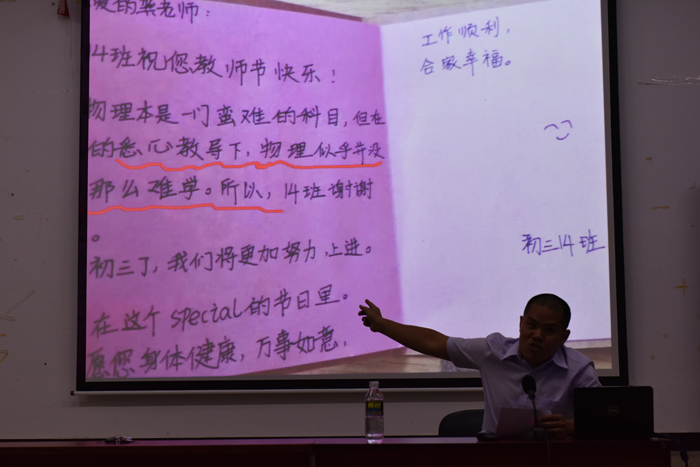 的梁老师：
14班祝您教师节快乐！
物理本是一门蛮难的科目，但在
的悉心教导下，物理似乎并没
那么难学。所以，14班谢谢
。
初三了，我们将更加努力，上进。
在这个special的节日里。
愿您身体健康，万事如意，
工作顺利，
合家幸福。
初三14班
DELL